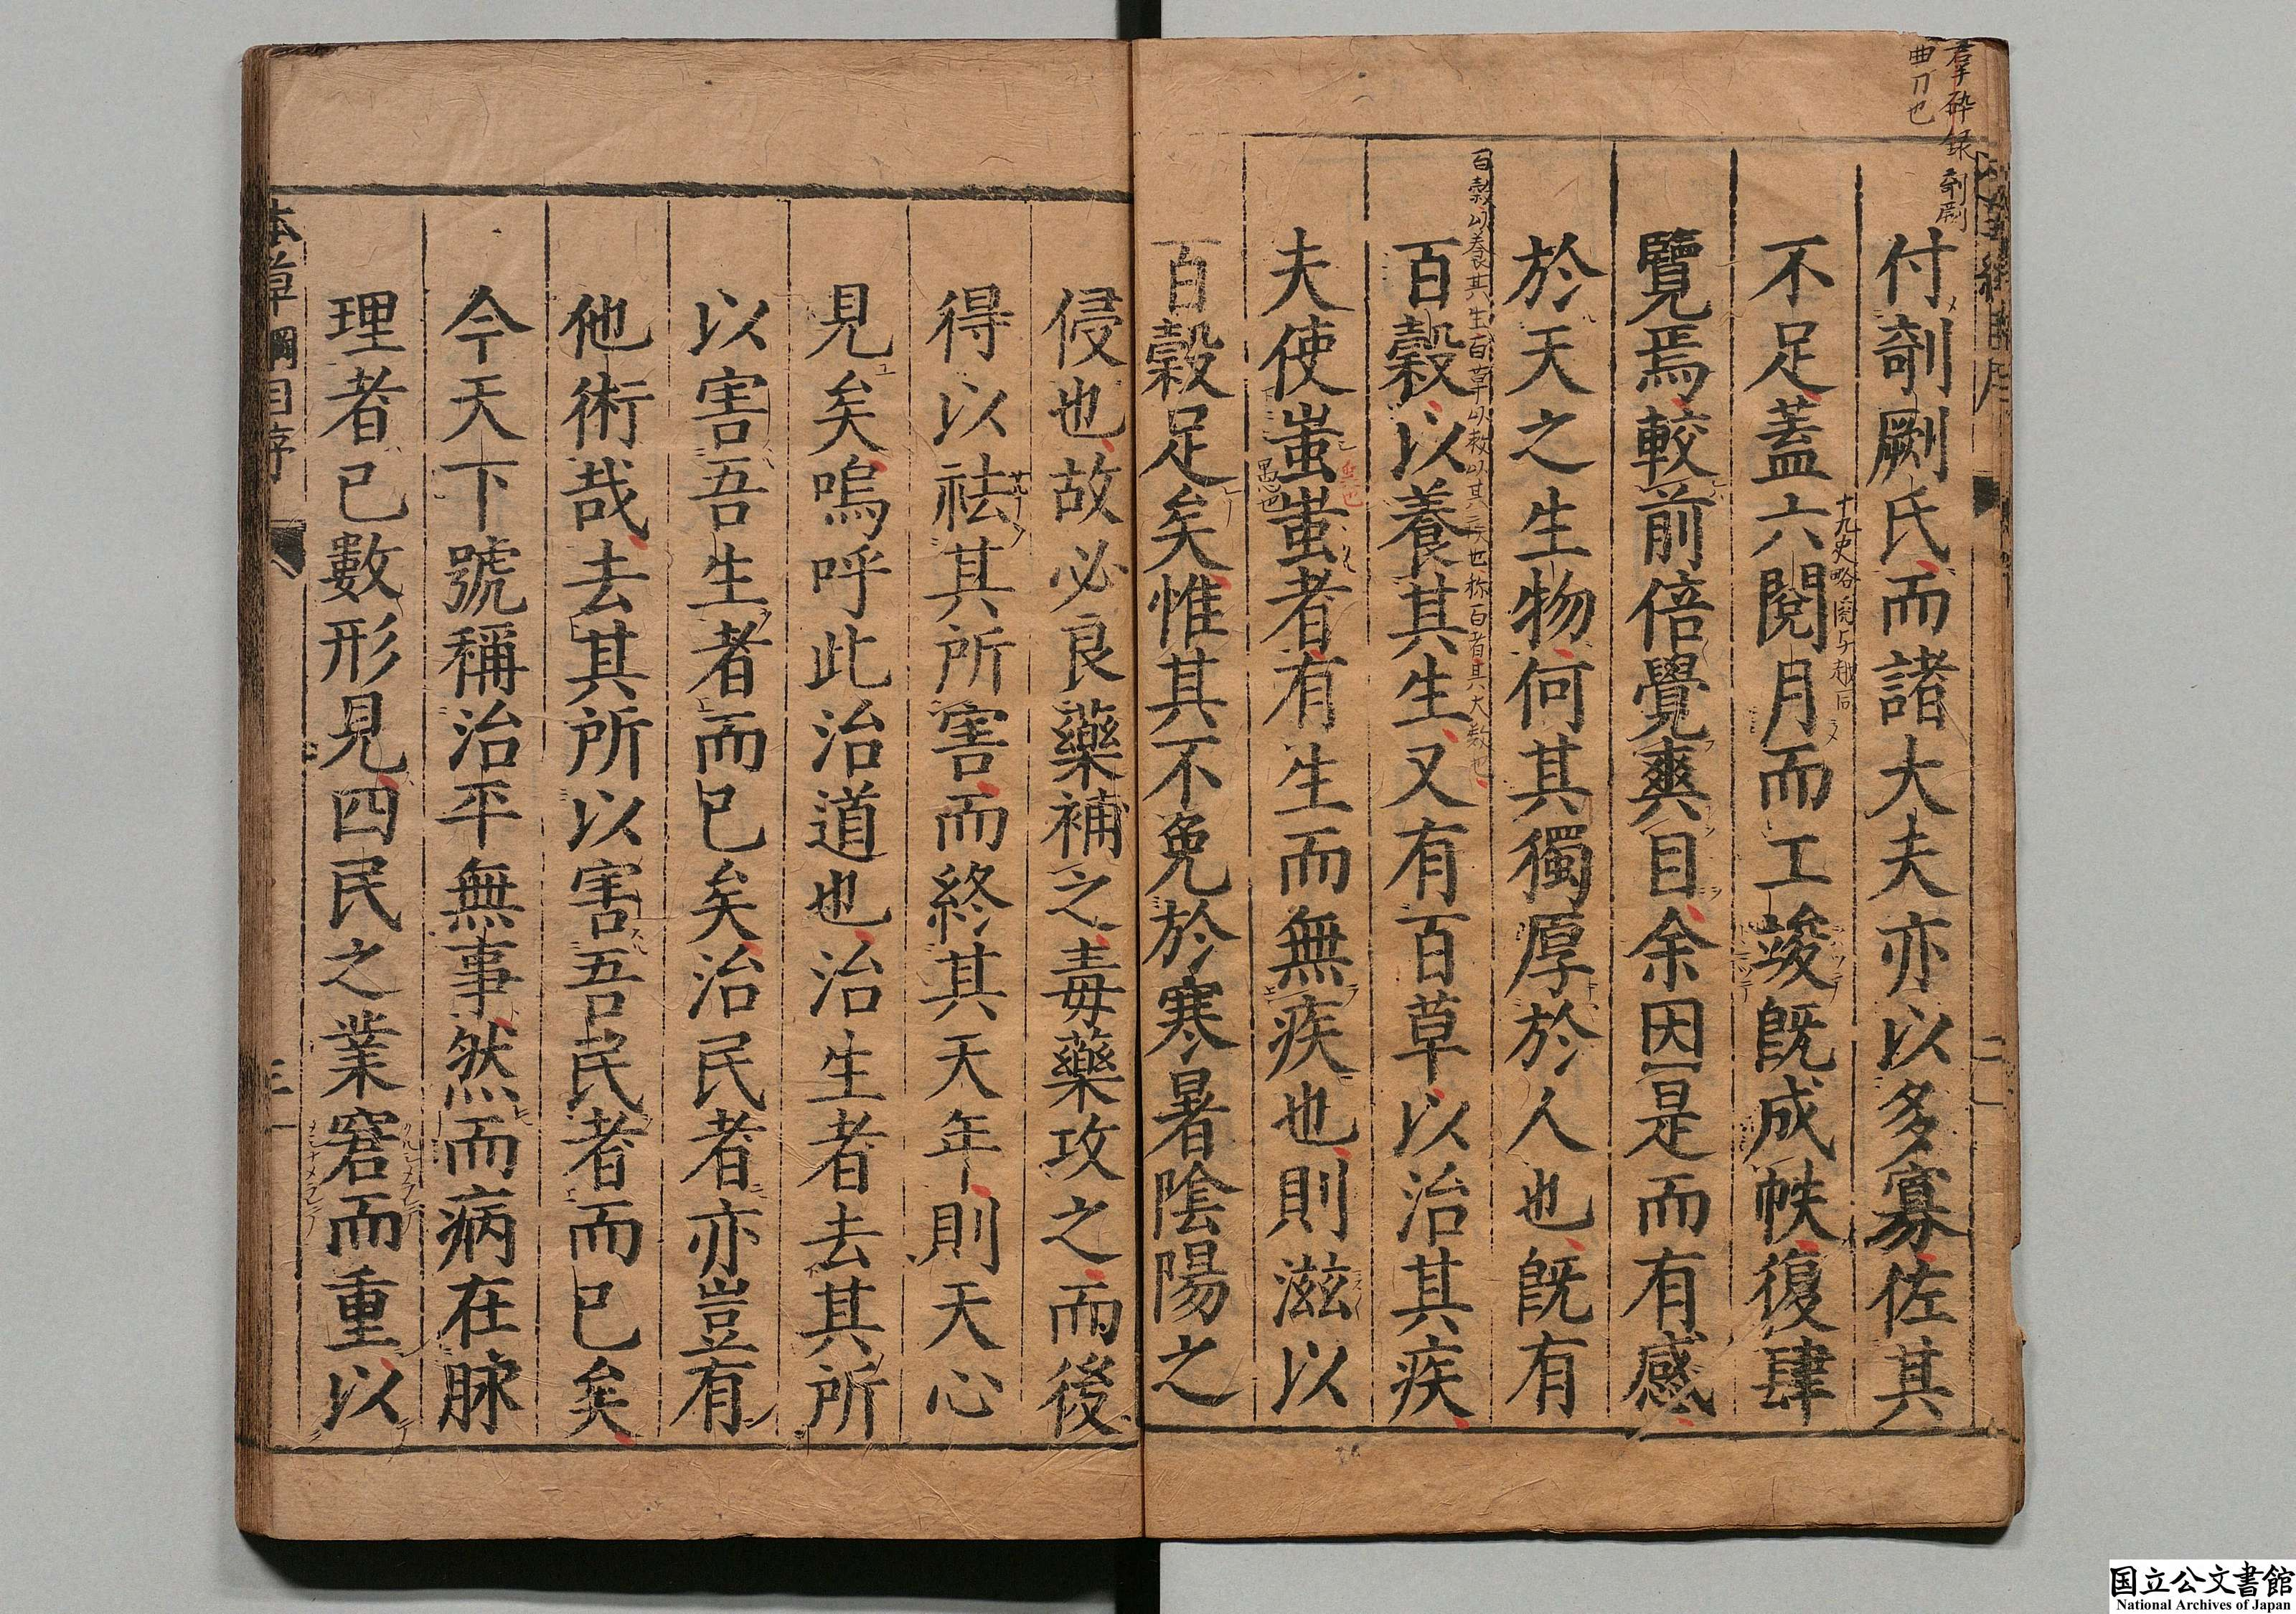 付剞劂氏而諸大夫亦以多寡佐其
不足蓋六閱月而工竣旣成帙復肆
覽焉較前倍覺爽目余因是而有感
於天之生物何其獨厚於人也旣有
百穀以養其生又有百草以治其疾
夫使蚩蚩者有生而無疾也則滋以
百穀足矣惟其不免於寒暑陰陽之
侵也故必良藥補之毒藥攻之而後
得以袪其所害而終其天年則天心
見矣嗚呼此治道也治生者去其所
以害吾生者而已矣治民者亦豈有
他術哉去其所以害吾民者而已矣
今天下號稱治平無事然而病在脉
理者已數形見四民之業窘而重以
本草綱目序
三
二
剞劂
曲刀也
百穀以養其生百草以救以其三疾也称百者其大数也
十九史略
愚也
国立公文書館
National Archives of Japan